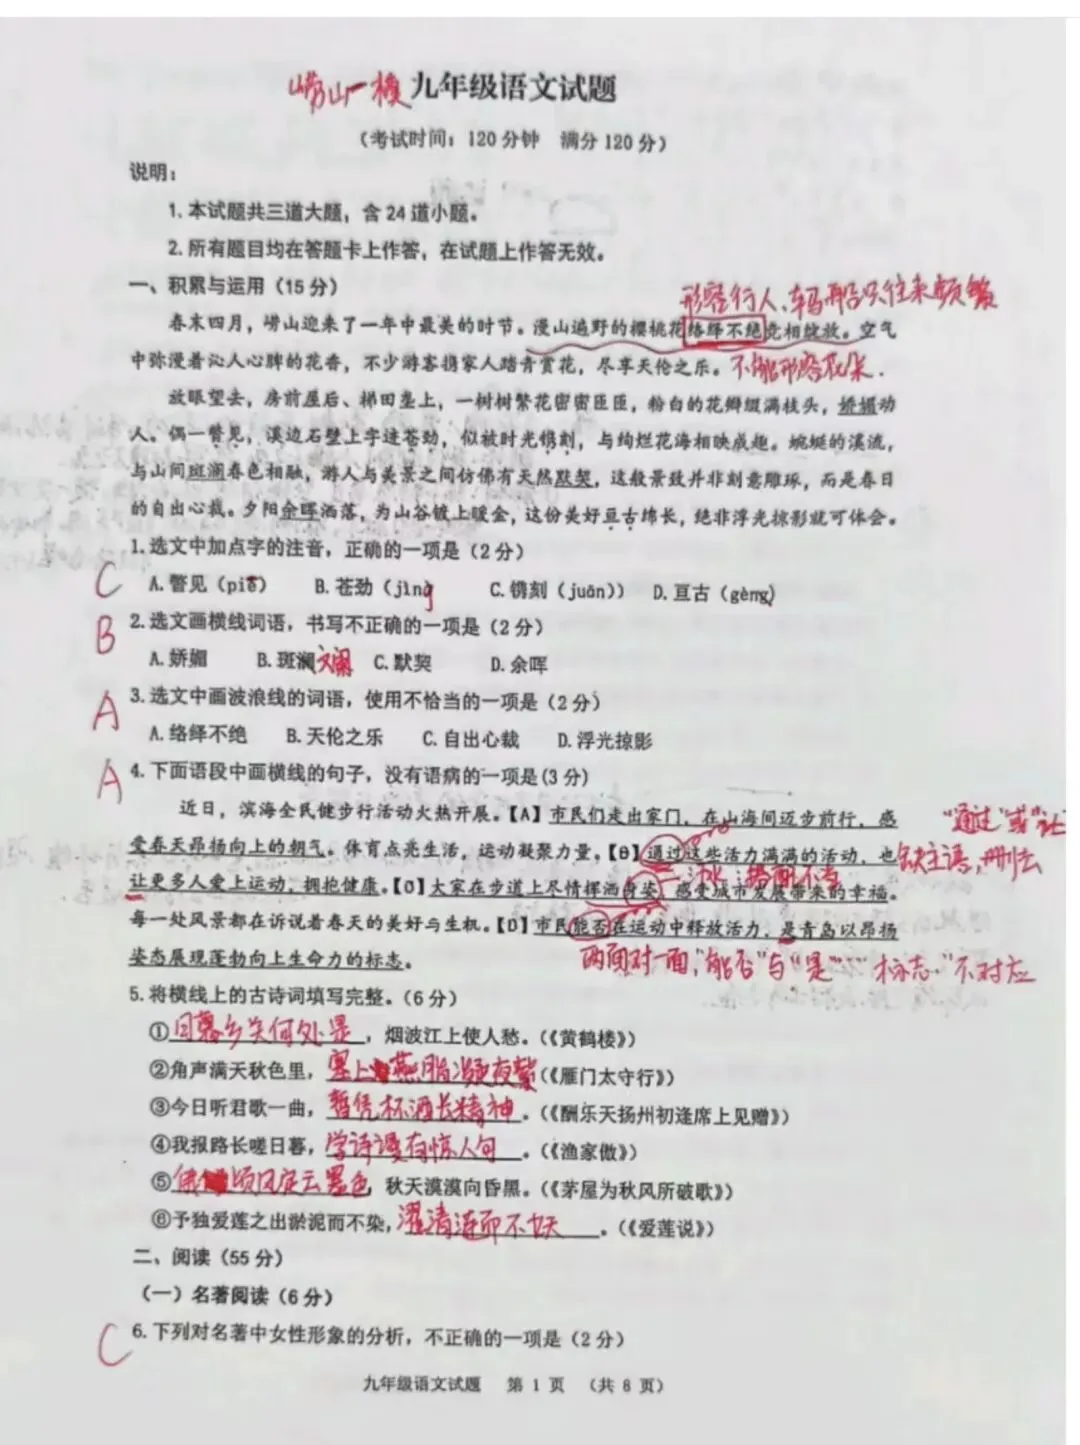 崂山一模 九年级语文试题
(考试时间：120分钟 满分120分)
说明：
1.本试题共三道大题，含24道小题。
2.所有题目均在答题卡上作答，在试题上作答无效。
一、积累与运用(15分)
形容行人、车马船只往来频繁
春末四月，崂山迎来了一年中最美的时节。漫山遍野的樱桃花络绎不绝竞相绽放。空气
中弥漫着沁人心脾的花香，不少游客携家人踏青赏花，尽享天伦之乐。不能形容花朵.
放眼望去，房前屋后、梯田垄上，一树树繁花密密匝匝，粉白的花瓣缀满枝头，娇媚动
人。偶一瞥见，溪边石壁上字迹苍劲，似被时光镌刻，与绚烂花海相映成趣。蜿蜒的溪流，
与山间斑澜春色相融，游人与美景之间仿佛有天然默契，这般景致并非刻意雕琢，而是春日
的自出心裁。夕阳余晖洒落，为山谷镀上暖金，这份美好亘古绵长，绝非浮光掠影就可体会。
1.选文中加点字的注音，正确的一项是(2分)
C A.瞥见(piē) B.苍劲(jìng) C.镌刻(juān)) D.亘古(gèng)
B 2.选文画横线词语，书写不正确的一项是(2分)
A.娇媚 B.斑澜 斓 C.默契 D.余晖
A 3.选文中画波浪线的词语，使用不恰当的一项是(2分)
A.络绎不绝 B.天伦之乐 C.自出心裁 D.浮光掠影
A 4.下面语段中画横线的句子，没有语病的一项是(3分)
近日，滨海全民健步行活动火热开展。【A】市民们走出家门，在山海间迈步前行，感 "通过"或"让"
受春天昂扬向上的朝气。体育点亮生活，运动凝聚力量，【B】通过这些活力满满的活动，也 缺主语，删去
让更多人爱上运动，拥抱健康。【C】大家在步道上尽情挥洒身姿，感受城市发展带来的幸福。 汗水 搭配不当
每一处风景都在诉说着春天的美好与生机。【D】市民能否在运动中释放活力，是青岛以昂扬
姿态展现蓬勃向上生命力的标志。 两面对一面，"能否"与"是……标志"不对应
5.将横线上的古诗词填写完整。(6分)
①日暮乡关何处是，烟波江上使人愁。(《黄鹤楼》)
②角声满天秋色里，塞上燕脂凝夜紫(《雁门太守行》)
③今日听君歌一曲，暂凭杯酒长精神。(《酬乐天扬州初逢席上见赠》)
④我报路长嗟日暮，学诗谩有惊人句。(《渔家傲》)
⑤俄顷风定云墨色，秋天漠漠向昏黑。(《茅屋为秋风所破歌》)
⑥予独爱莲之出淤泥而不染，濯清涟而不妖。(《爱莲说》)
二、阅读(55分)
(一)名著阅读(6分)
C 6.下列对名著中女性形象的分析，不正确的一项是(2分)
九年级语文试题 第1页 (共8页)